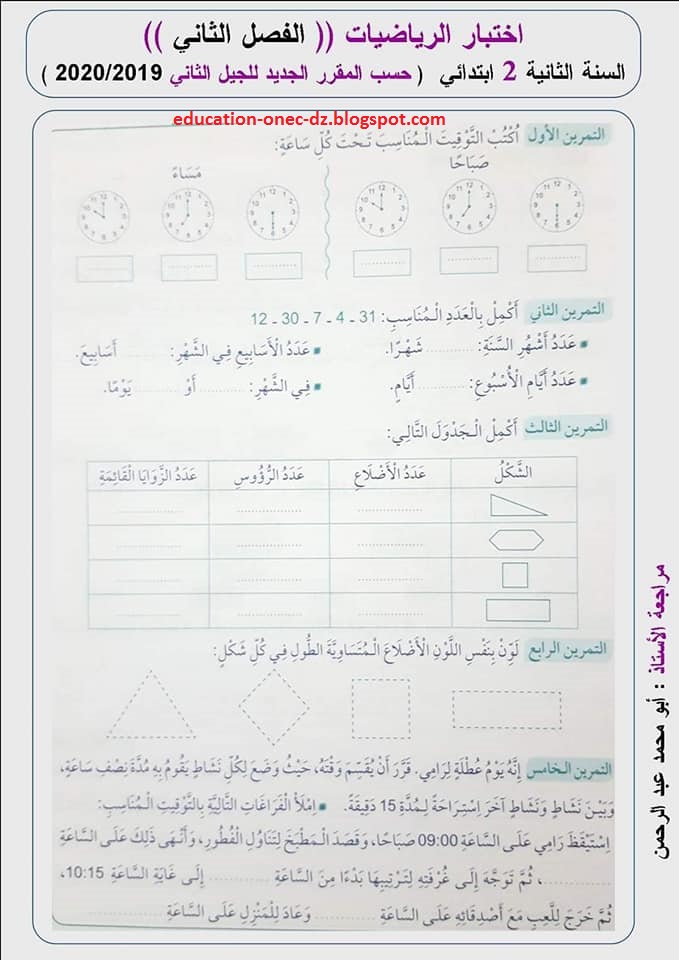 اختبار الرياضيات (( الفصل الثاني ))
السنة الثانية 2 ابتدائي ( حسب المقرر الجديد للجيل الثاني 2020/2019 )
education-onec-dz.blogspot.com
التمرين الأول أُكْتُبْ التَّوْقِيتَ الْمُنَاسِبَ تَحْتَ كُلِّ سَاعَةٍ:
صَبَاحًا
مَسَاءً
التمرين الثاني أَكْمِلْ بِالْعَدَدِ الْمُنَاسِبِ: 31 - 4 - 7 - 30 - 12
عَدَدُ أَشْهُرِ السَّنَةِ: ............ شَهْرًا. عَدَدُ الْأَسَابِيعِ فِي الشَّهْرِ: ............ أَسَابِيعَ.
عَدَدُ أَيَّامِ الْأُسْبُوعِ: ............ أَيَّامٍ. فِي الشَّهْرِ: ............ أَوْ ............ يَوْمًا.
التمرين الثالث أَكْمِلْ الْجَدْوَلَ التَّالِي:
الشَّكْلُ عَدَدُ الْأَضْلَاعِ عَدَدُ الرُّؤُوسِ عَدَدُ الزَّوَايَا الْقَائِمَةِ
التمرين الرابع لَوِّنْ بِنَفْسِ اللَّوْنِ الْأَضْلَاعَ الْمُتَسَاوِيَّةَ الطُّولِ فِي كُلِّ شَكْلٍ:
التمرين الخامس إِنَّهُ يَوْمُ عُطْلَةٍ لِرَامِي. قَرَّرَ أَنْ يُقَسِّمَ وَقْتَهُ، حَيْثُ وَضَعَ لِكُلِّ نَشَاطٍ يَقُومُ بِهِ مُدَّةَ نِصْفِ سَاعَةٍ،
وَبَيْنَ نَشَاطٍ وَنَشَاطٍ آخَرَ اِسْتِرَاحَةً لِمُدَّةِ 15 دَقِيقَةً. اِمْلَأْ الْفَرَاغَاتِ التَّالِيَّةَ بِالتَّوْقِيتِ الْمُنَاسِبِ:
اِسْتَيْقَظَ رَامِي عَلَى السَّاعَةِ 09:00 صَبَاحًا، وَقَصَدَ الْمَطْبَخَ لِتَنَاوُلِ الْفُطُورِ، وَأَنْهَى ذَلِكَ عَلَى السَّاعَةِ
............، ثُمَّ تَوَجَّهَ إِلَى غُرْفَتِهِ لِتَرْتِيبِهَا بَدْءًا مِنَ السَّاعَةِ ............ إِلَى غَايَةِ السَّاعَةِ 10:15،
ثُمَّ خَرَجَ لِلَّعِبِ مَعَ أَصْدِقَائِهِ عَلَى السَّاعَةِ ............ وَعَادَ لِلْمَنْزِلِ عَلَى السَّاعَةِ ............
مراجعة الأستاذ : أبو محمد عبد الرحمن